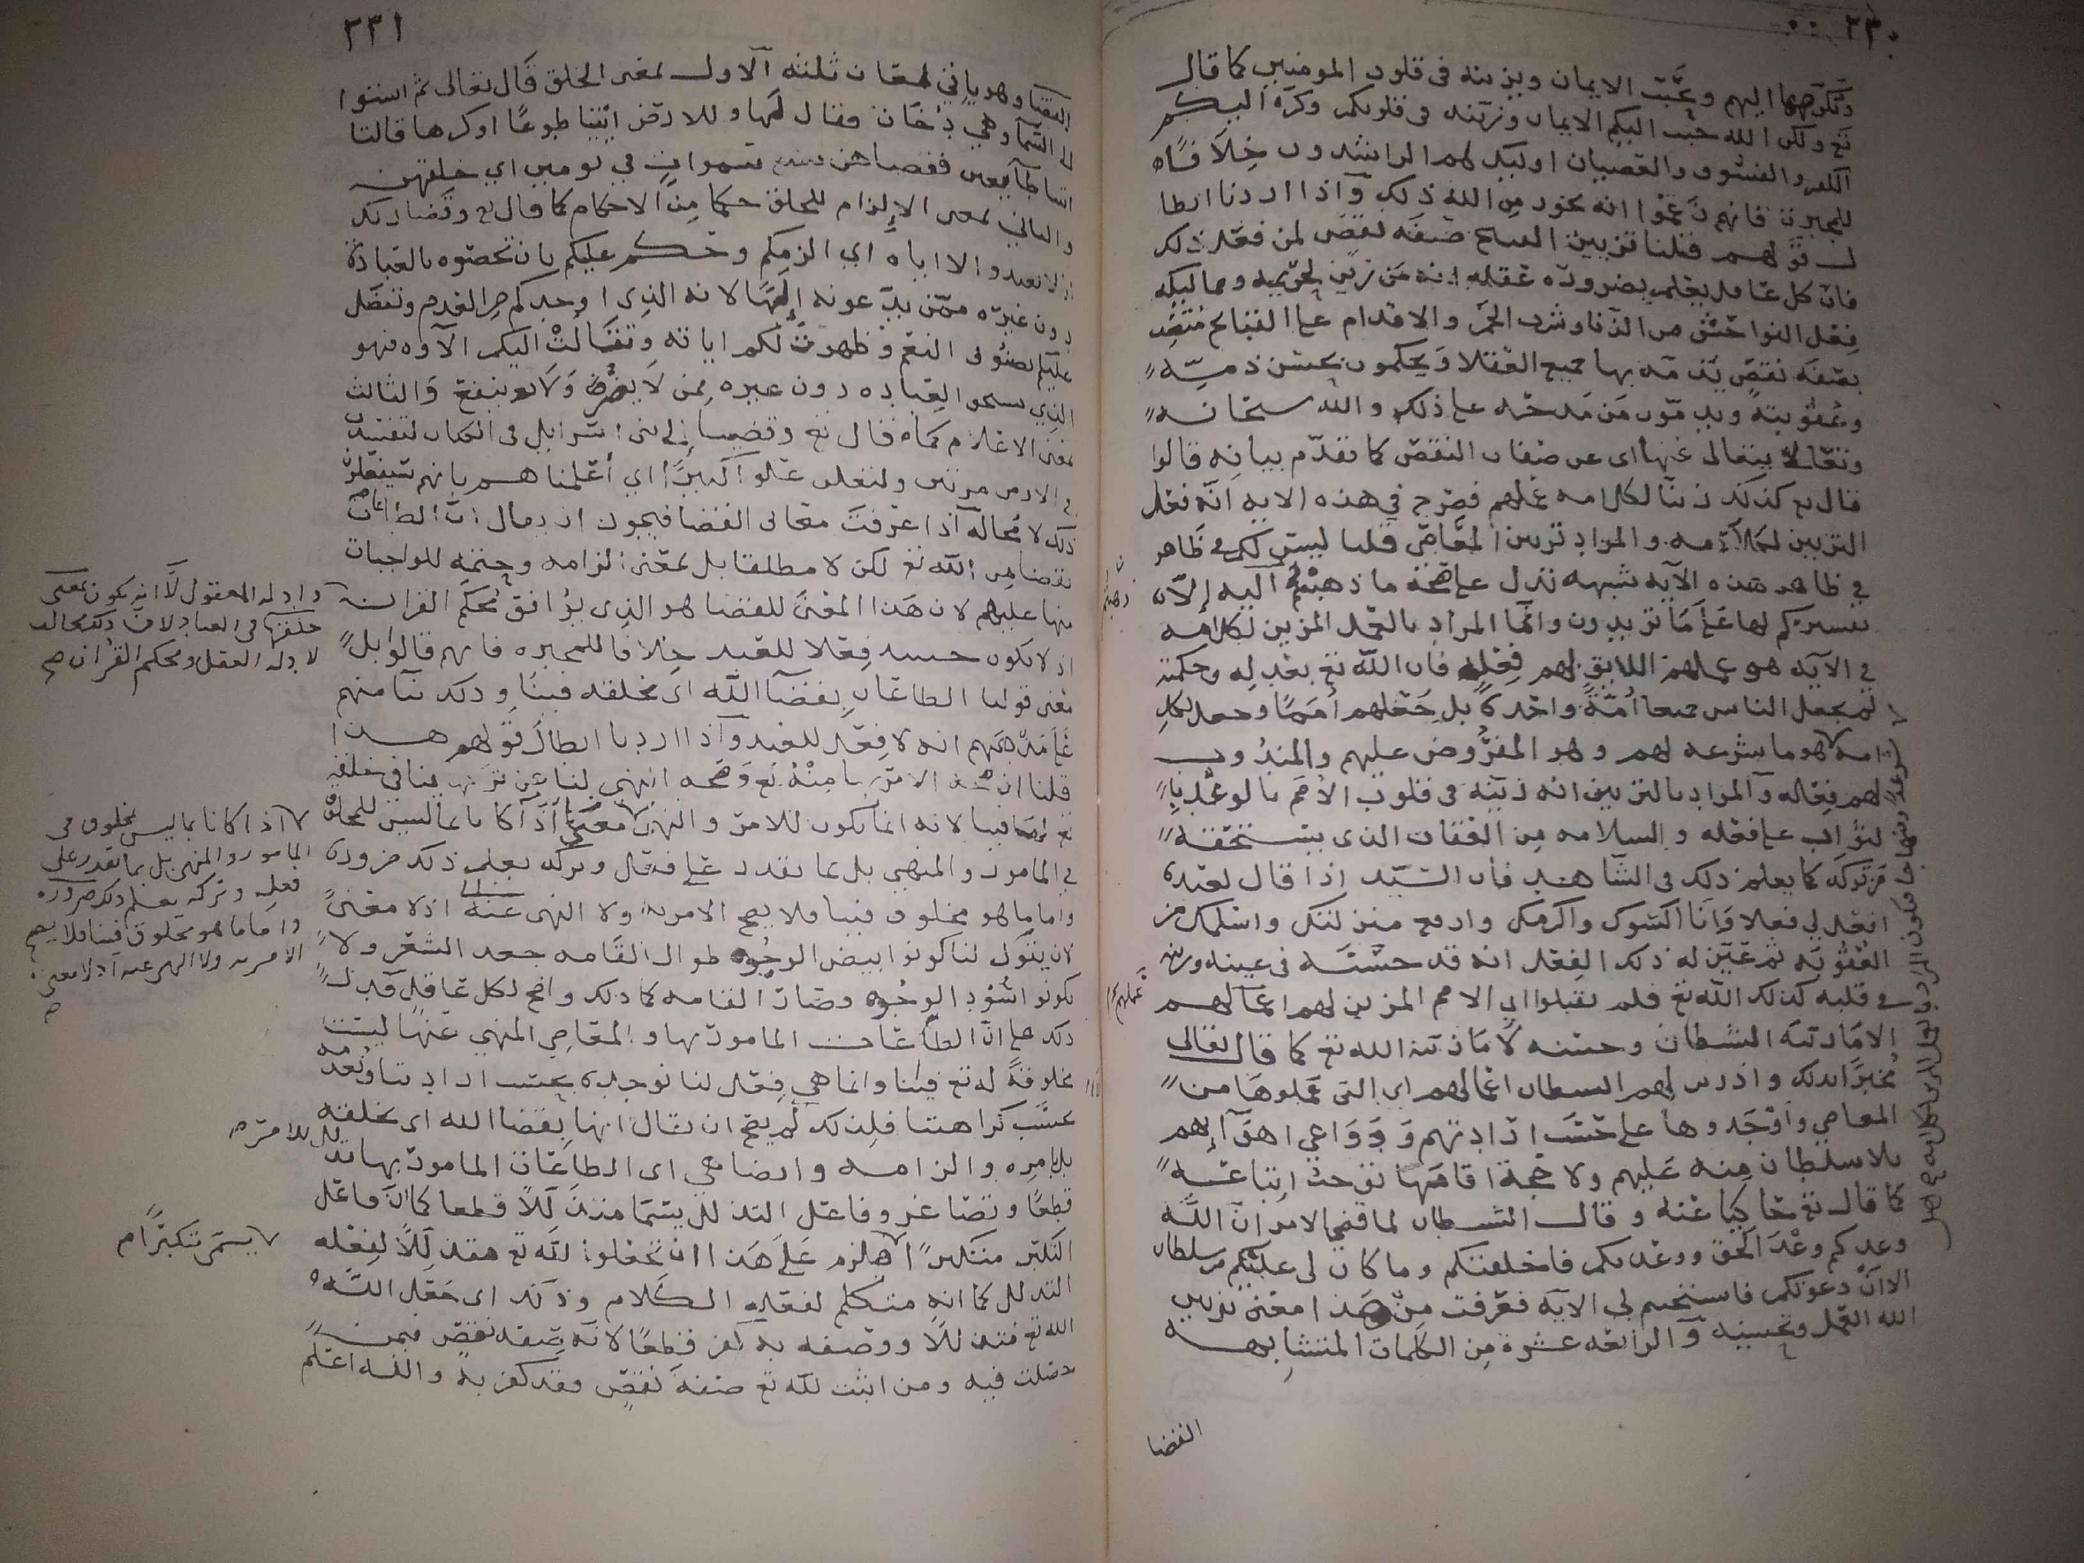 ٢٣٠
ويكرهها اليهم ويحبب الايمان ويزينه فى قلوب المومنين كما قال
تع ولكن الله حبب اليكم الايمان وزينه فى قلوبكم وكره اليكم
الكفر والفسوق والعصيان اوليك هم الراشدون خلافًا
للمجبرة فانهم زعموا انه يجوز من الله ذلك وآذا اردنا ابطا
ل قولهم قلنا تزيين القبيح صفة نقص لمن فعل ذلك
فان كل عاقل يعلم بضرورة عقله انه من زين لحريمه ومماليكه
فعل الفواحش من الزنا وشرب الخمر والاقدام على القبايح متصف
بصفة نقص يذمه بها جميع العقلا ويحكمون بحسن ذمه
وعقوبته ويذمون من مدحه على ذلك والله سبحانه
وتعالى يتعالى عنها اى عن صفات النقص كما تقدم بيانه قالوا
قال تع كذلك زينا لكل امه عملهم فصرح في هذه الايه انه فعل
التزيين لكل امه والمراد تزيين المعاصى قلنا ليس لكم فى ظاهر
في ظاهر هذه الآيه شبهه تدل على صحة ما ذهبتم اليه إلا
تفسيركم لها على ما تريدون وانما المراد بالعمل المزين لكل امه
في الآيه هو عملهم اللايق بهم فعله فان الله تع بعدله وحكمته
لم يجعل الناس جميعا أمة واحدة بل جعلهم أممًا وجعل لكل
امه هو ما شرعه لهم وهو المفروض عليهم والمندوب
لهم فعاله والمراد بالتزيين انه زينه فى قلوب الأمم بالوعد با
لثواب على فعله والسلامه من العقاب الذى يستحقه
من تركه كما يعلم ذلك فى الشاهد فان السيد اذا قال لعبده
افعل لي فعلا وأنا اكسوك واكرمك وارفع منزلتك واسلمك من
العقوبه ثم عين له ذلك الفعل انه قد حسنه فى عينه وزينه
في قلبه كذلك الله تع فلم يقبلوا اي الامم المزين لهم اعمالهم
الا ما زينه الشيطان وحسنه لا ما زينه الله تع كما قال تعالى
مخبرًا بذلك واذ زين لهم الشيطان اعمالهم اي التى عملوها من
المعاصي واوجدوها على حسب ارادتهم ودواعي اهوآئهم
بلا سلطان منه عليهم ولا حجة اقامها توجب اتباعه
كما قال تع حاكيا عنه وقال الشيطان لما قضي الامر ان الله
وعدكم وعد الحق ووعدتكم فاخلفتكم وما كان لى عليكم من سلطان
الا ان دعوتكم فاستجبتم لي الآيه فعرفت من هذا معنى تزيين
الله العمل وتحسينه والرابعه عشرة من الكلمات المتشابهه
القضا
ذهبتم
عملهم
٢٣١
القضا وهو ياتي لمعان ثلثه الاول بمعنى الخلق قال تعالى ثم استوا
الى السمآ وهي دخان فقال لها وللارض ائتيا طوعًا او كرها قالتا
اتينا طآيعين فقضاهن سبع سموات في يومين اي خلقهن
والثاني بمعنى الإلزام للخلق حكما من الاحكام كما قال تع وقضا ربك
ان لا تعبدوا الا اياه اي الزمكم وحكم عليكم بان تخصوه بالعبادة
دون غيره ممن يدعونه إلهًا لانه الذى اوجدكم من العدم وتفضل
عليكم بصنوف النعم وظهرت لكم اياته وتتالت اليكم الآوه فهو
الذي يستحق العباده دون غيره ممن لا يضر ولا ينفع والثالث
بمعنى الاعلام كما قال تع وقضينا إلى بنى اسرآيل فى الكتاب لتفسدن
في الارض مرتين ولتعلن علوا كبيرًا اي أعلمناهم بانهم سيفعلون
ذلك لا محاله آذا عرفت معانى القضا فيجوز ان يقال ان الطاعات
بقضا من الله تع لكن لا مطلقا بل بمعنى الزامه وحتمه للواجبات
منها عليهم لان هذا المعنى للقضا هو الذى يوافق محكم القران
اذ لا يكون حينيد فعلا للعبد خلافا للمجبره فانهم قالوا بل
معنى قولنا الطاعات بقضآ الله اى بخلقه فينا وذلك بنآ منهم
على مذهبهم انه لا فعل للعبد وآذا اردنا ابطال قولهم هذا
قلنا ان صحة الامر بها منه تع وصحه النهي لنا عن تركها ينافي خلقه
تع لها فينا لانه انما يكون للامر والنهي معنى اذا كانا بما ليس بمخلوق
في المامور والمنهي بل بما يقدر على فعله وتركه يعلم ذلك ضرورة
واما ما هو مخلوق فينا فلا يصح الامر به ولا النهى عنه اذ لا معنىً
لان يقول لنا كونوا بيض الوجوه طوال القامه جعد الشعر ولا
تكونوا اسود الوجوه وقصار القامه كما ذلك واضح لكل عاقل فدل
ذلك على ان الطاعات المامور بها والمعاصي المنهي عنها ليست
مخلوقةً له تع فينا وانما هي فعل لنا نوجده بحسب ارادتنا ونعدمه
بحسب كراهتنا فلذلك لم يصح ان يقال انها بقضا الله اى بخلقه
بل بامره والزامه وايضا هي اى الطاعات المامور بها تذلل
قطعًا وتصاغر وفاعل التذلل يسمى متذللاً قطعا كما ان فاعل
التكبر متكبرًا فيلزم على هذا ان تجعلوا الله تع متذللاً لفعله
التذلل كما انه متكلم لفعله الكلام وذلك اى جعل الله
الله تع متذللاً ووصفه به كفر قطعًا لانه صفه نقص فيمن
حصلت فيه ومن اثبت لله تع صفة نقص فقد كفر به والله اعلم
وادله المعقول لا ان يكون بمعنى
خلقها فى العباد لان ذلك مخالف
لادله العقل ومحكم القران صح
اذا كانا بما ليس بمخلوق فى
المامور والمنهي بل بما يقدر على
فعله وتركه يعلم ذلك ضرورة
واما ما هو مخلوق فينا فلا يصح
الامر به ولا النهى عنه اذ لا معنى
صح
للامر
يسمى متكبرًا